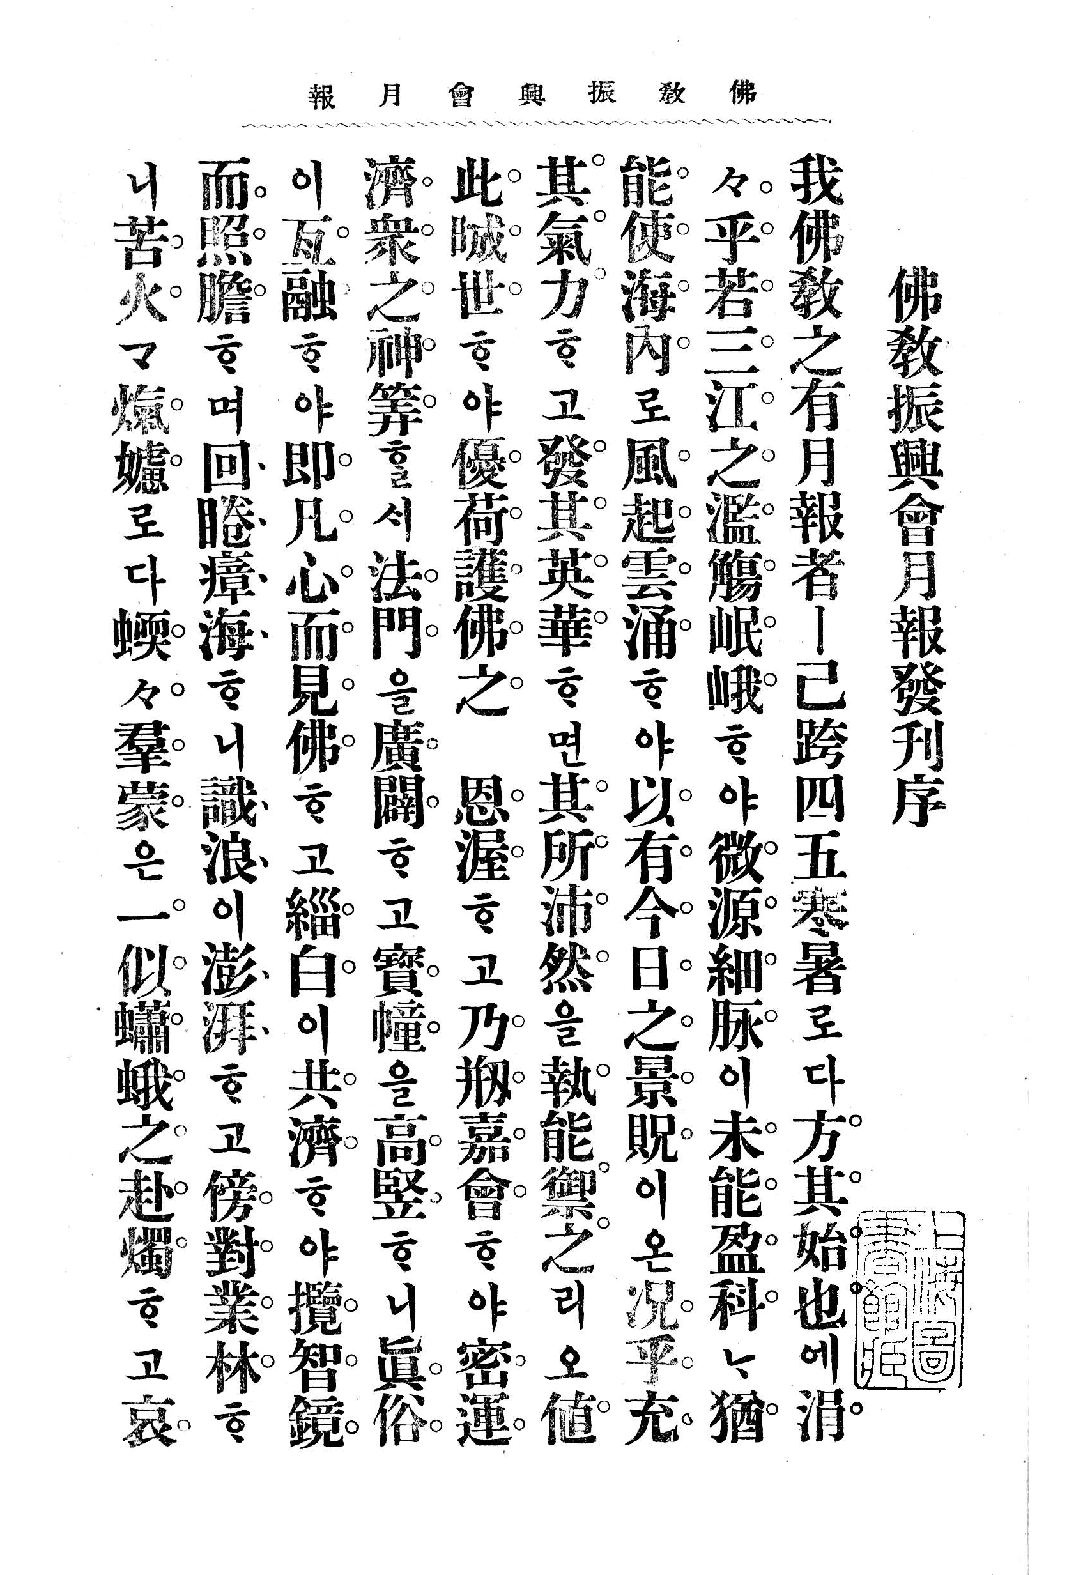 佛敎振興會月報
佛敎振興會月報發刊序
我佛敎之有月報者ㅣ己跨四五寒暑로다方其始也에涓
々乎若三江之濫觴岷峨ᄒᆞ야微源細脉이未能盈科ㄴ猶
能使海內로風起雲涌ᄒᆞ야以有今日之景貺이온况乎充
其氣力ᄒᆞ고發其英華ᄒᆞ면其所沛然을執能禦之리오値
此晠世ᄒᆞ야優荷護佛之 恩渥ᄒᆞ고乃剏嘉會ᄒᆞ야密運
濟衆之神筭ᄒᆞᆯ서法門을廣闢ᄒᆞ고寶幢을高竪ᄒᆞ니眞俗
이互融ᄒᆞ야即凡心而見佛ᄒᆞ고緇白이共濟ᄒᆞ야攬智鏡
而照膽ᄒᆞ며回睠瘴海ᄒᆞ니識浪이澎湃ᄒᆞ고傍對業林ᄒᆞ
니苦火マ熂爐로다蝡々羣蒙은一似蠨蛾之赴燭ᄒᆞ고哀
上海圖書館藏